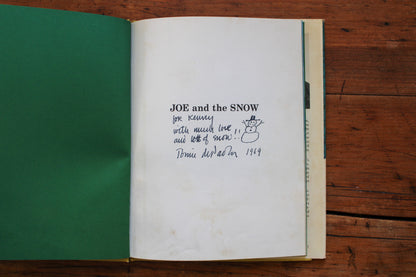 JOE and the SNOW
for Kenny
with much love
and lots of snow!!
Tomie dePaola 1969